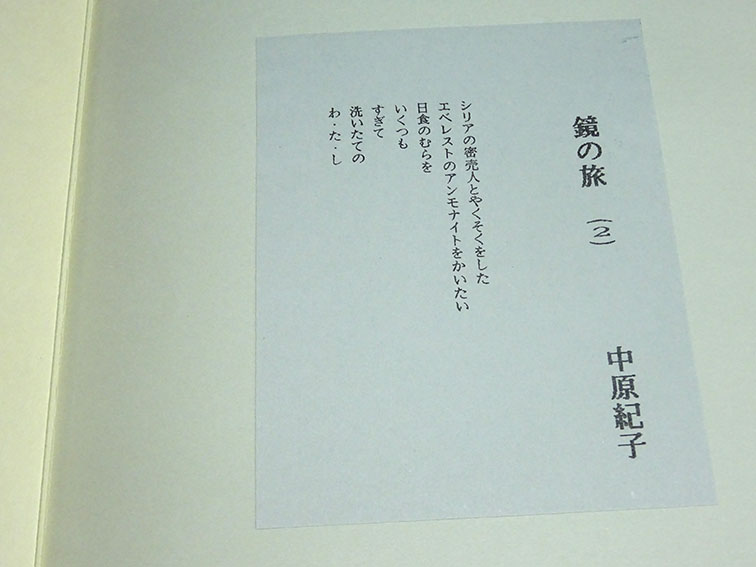 鏡の旅 (2)
中原紀子
シリアの密売人とやくそくをした
エベレストのアンモナイトをかいたい
日食のむらを
いくつも
すぎて
洗いたての
わ・た・し